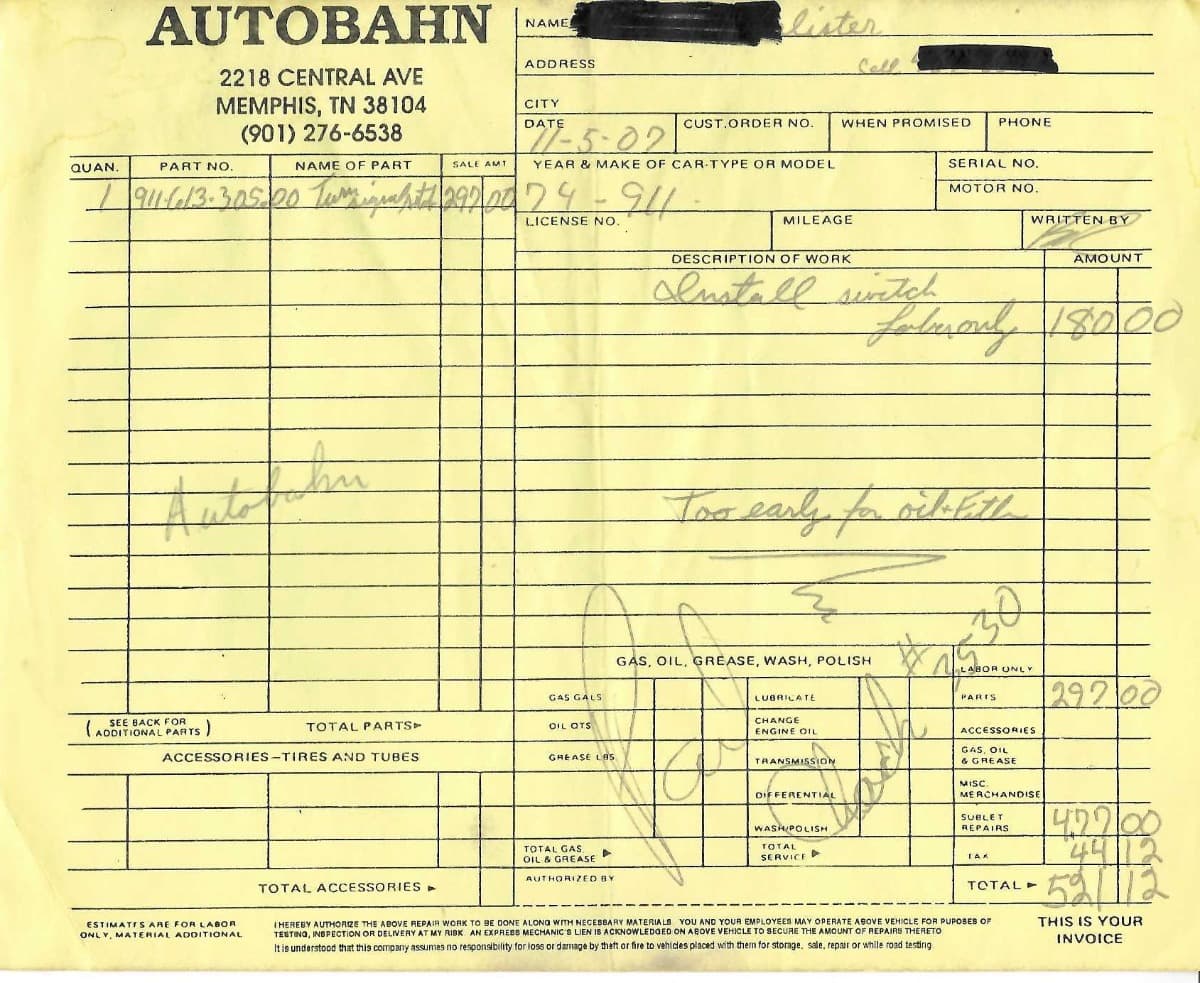 AUTOBAHN
2218 CENTRAL AVE
MEMPHIS, TN 38104
(901) 276-6538
NAME lister
ADDRESS Cell
CITY
DATE 11-5-07
CUST. ORDER NO.
WHEN PROMISED
PHONE
QUAN. PART NO. NAME OF PART SALE AMT
1 911-613-305-00 Turn signal 297 00
YEAR & MAKE OF CAR-TYPE OR MODEL
74 - 911
SERIAL NO.
MOTOR NO.
LICENSE NO.
MILEAGE
WRITTEN BY
DESCRIPTION OF WORK
AMOUNT
Install switch
Labor only 180 00
Autobahn
Too early for oil +
GAS, OIL, GREASE, WASH, POLISH
LABOR ONLY
GAS GALS
LUBRICATE
PARTS 297 00
OIL QTS
CHANGE
ENGINE OIL
ACCESSORIES
GREASE LBS
TRANSMISSION
GAS, OIL
& GREASE
DIFFERENTIAL
MISC.
MERCHANDISE
WASH/POLISH
SUBLET
REPAIRS 477 00
TOTAL GAS,
OIL & GREASE ▶
TOTAL
SERVICE ▶
TAX 44 12
AUTHORIZED BY
TOTAL ▶ 521 12
Paid
Check
( SEE BACK FOR
ADDITIONAL PARTS )
TOTAL PARTS ▶
ACCESSORIES – TIRES AND TUBES
TOTAL ACCESSORIES ▶
ESTIMATES ARE FOR LABOR
ONLY, MATERIAL ADDITIONAL
I HEREBY AUTHORIZE THE ABOVE REPAIR WORK TO BE DONE ALONG WITH NECESSARY MATERIALS. YOU AND YOUR EMPLOYEES MAY OPERATE ABOVE VEHICLE FOR PUPOSES OF
TESTING, INSPECTION OR DELIVERY AT MY RISK. AN EXPRESS MECHANIC'S LIEN IS ACKNOWLEDGED ON ABOVE VEHICLE TO SECURE THE AMOUNT OF REPAIRS THERETO
It is understood that this company assumes no responsibility for loss or damage by theft or fire to vehicles placed with them for storage, sale, repair or while road testing.
THIS IS YOUR
INVOICE